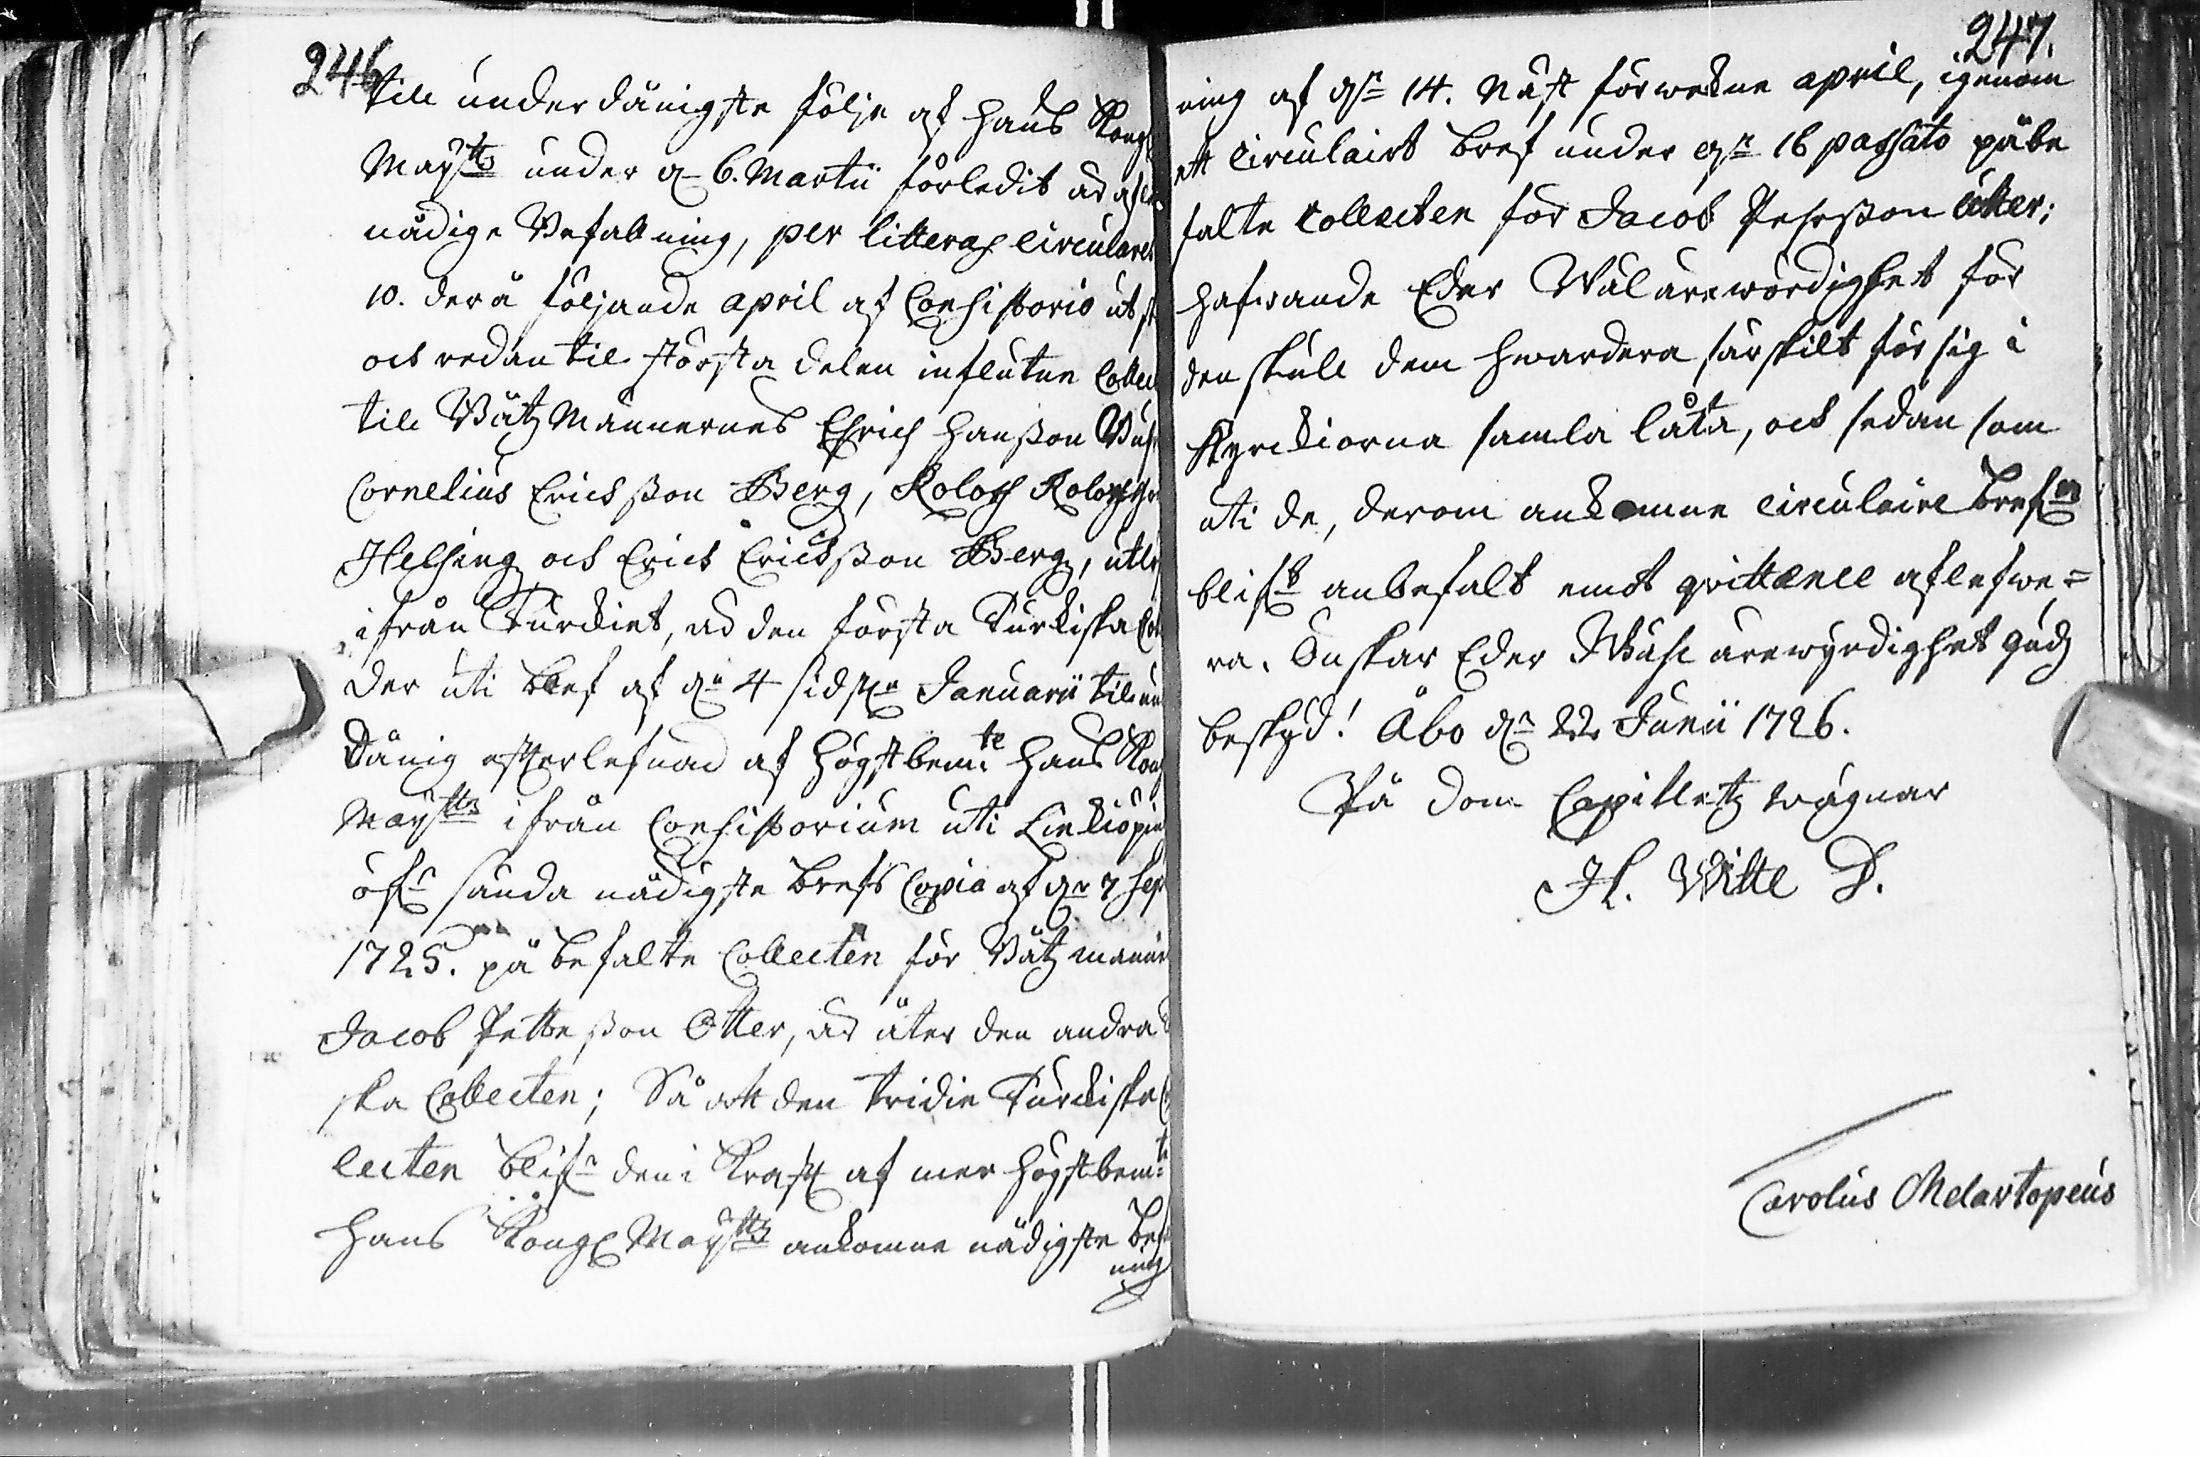 246
till underdånigste följe af hans Kongl
Maÿtts under d. 6. Martii förledit år
nådige Befallning, per litteras circulares
10. derå följande april af Consistorio
och redan til största delen influtne
till Båtz Männernes Ehrich Hansson
Cornelius Ericksson Berg, Roloff
Helsing och Erich Ericksson Berg,
ifrån Turkiet, är den första Turkiska
der uti bref af dn 4 sidstn Januarii till un
dånig efterlefnad af högstbemte hans Kongl
Maÿtts ifrån Consistorium uti Linkiöping
öfr sända nådigste brefs Copia af dn 7 sept
1725. påbefalte Collecten för Båtzmannen
Jacob Petterson Otter, är åter den andra
ska Collecten; Så att den tridie Turkiska
lecten blifr den i krafft af mer högstbemte
hans Kongl Maÿttz ankomne nådigste bef
ning
247.
ning af dn 14. näst förwekne april, igenom
ett circulairt bref under dn 16 passato påbe
falte Collecten för Jacob Pehrsson Otter;
hafwande Eder Wälärewördighet för
den skull dem hwardera särskilt för sig i
Kyrckiorna samla låta, och sedan som
uti de, derom ankomne circulaire brefwen
blifit anbefalt emot qvittance aflefwe=
ra. Önskar Eder Wäl ärewyrdighet gudz
beskyd! Åbo dn 22 Junii 1726.
På Dom Capitletz wägnar
H. Witte D.
Carolus Melartopæus